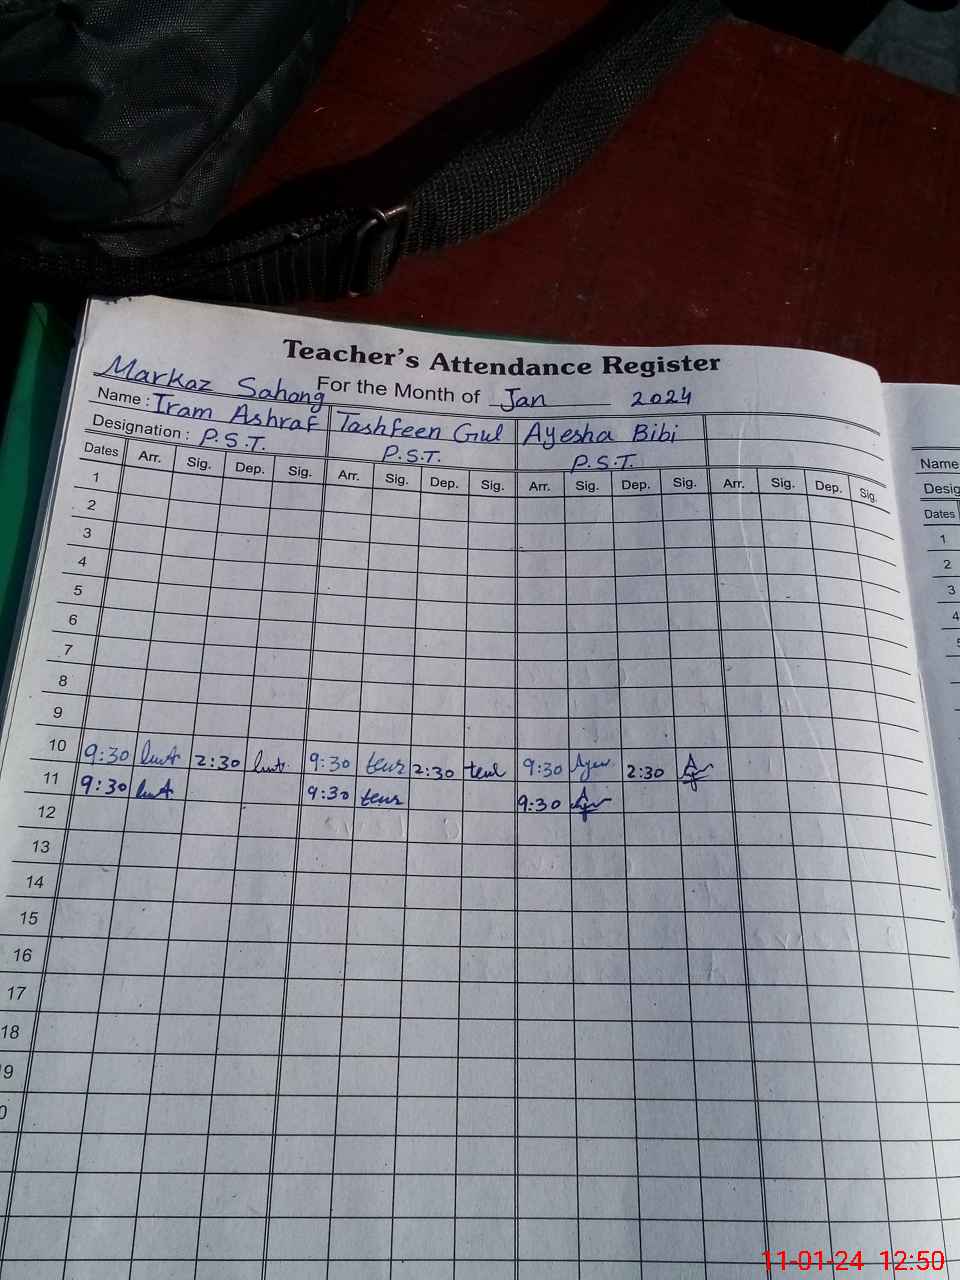 Teacher's Attendance Register
Markaz Sahong For the Month of Jan 2024
Name : Iram Ashraf Tashfeen Gul Ayesha Bibi
Designation : P.S.T. P.S.T. P.S.T.
Dates Arr. Sig. Dep. Sig. Arr. Sig. Dep. Sig. Arr. Sig. Dep. Sig. Arr. Sig. Dep. Sig.
1
2
3
4
5
6
7
8
9
10 9:30 2:30 9:30 2:30 9:30 2:30
11 9:30 9:30 9:30
12
13
14
15
16
17
18
9
0
Name
Desig
Dates
1
2
3
4
5
11-01-24 12:50